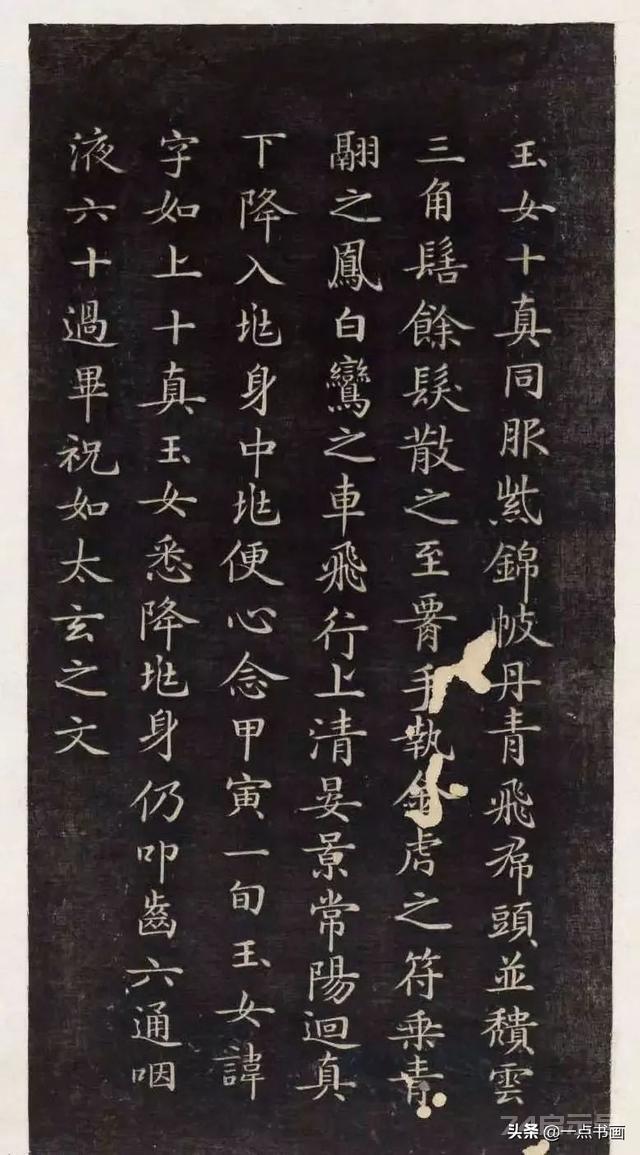 玉女十真同服紫錦帔丹青飛帬頭並穨雲
三角髻餘髮散之至腰手執金虎之符乘青
翮之鳳白鸞之車飛行上清晏景常陽迴真
下降入兆身中兆便心念甲寅一旬玉女諱
字如上十真玉女悉降兆身仍叩齒六通咽
液六十過畢祝如太玄之文
头条 @一点书画